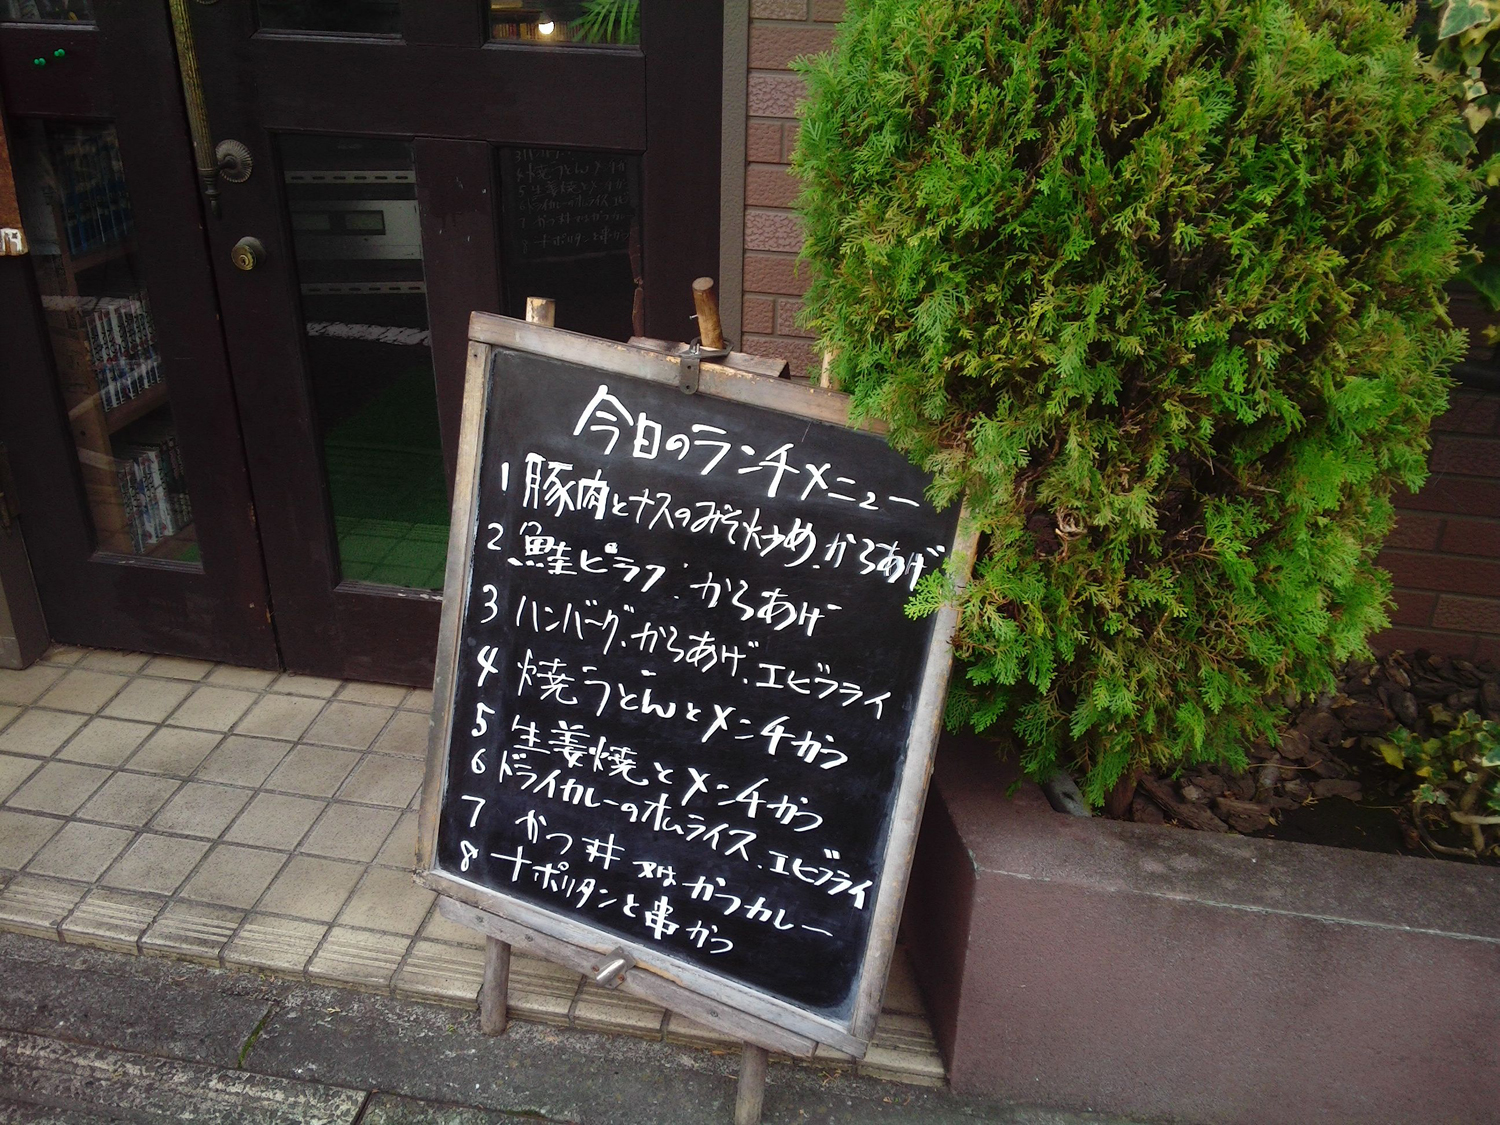 今日のランチメニュー
1 豚肉とナスのみそ炒め、からあげ
2 鮭ピラフ、からあげ
3 ハンバーグ、からあげ、エビフライ
4 焼うどんとメンチかつ
5 生姜焼とメンチかつ
6 ドライカレーのオムライス、エビフライ
7 かつ丼 又は かつカレー
8 ナポリタンと串かつ